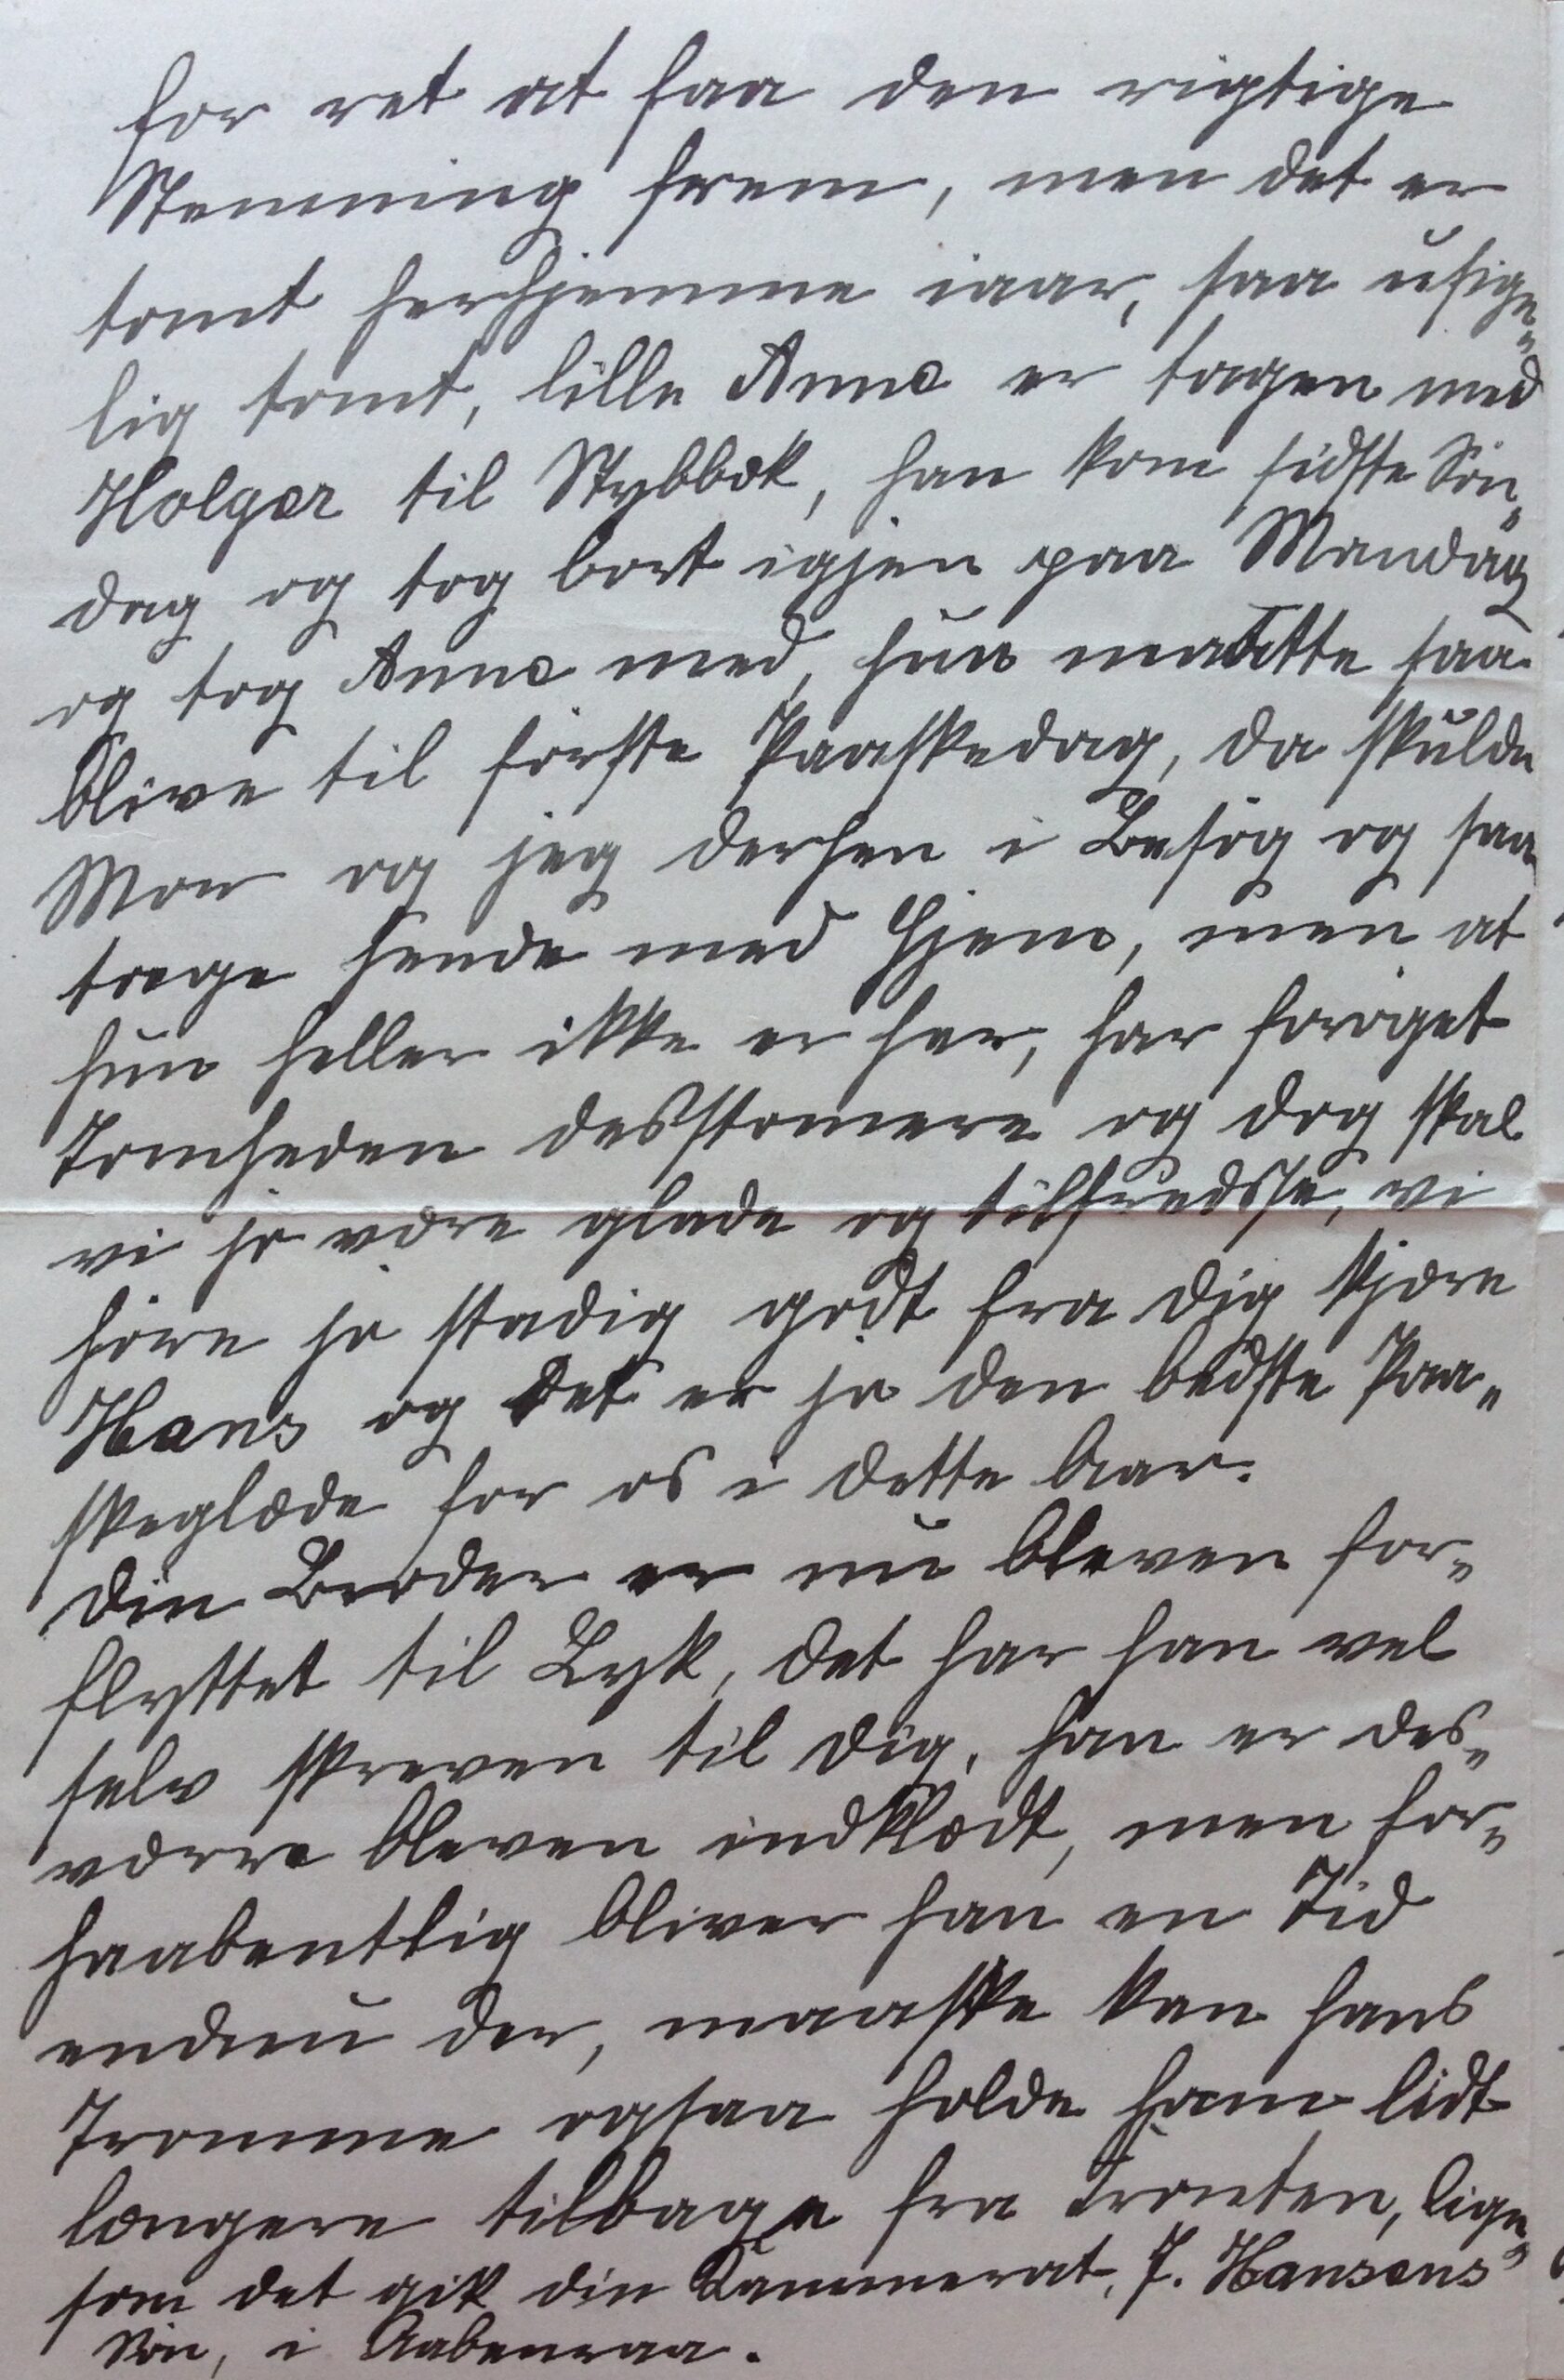 for ret at faa den rigtige
Stemning frem, men det er
tomt herhjemme iaar, saa usige„
lig tomt, lille Anne er tagen med
Holger til Stybbæk, han kom sidste Søn„
dag og tog bort igjen paa Mandag
og tog Anne med, hun maatte saa
blive til første Paaskedag, da skulde
Mor og jeg derhen i Besøg og saa
tage hende med hjem, men at
hun heller ikke er her, har forøget
Tomheden desstomere og dog skal
vi jo være glade og tilfredse, vi
høre jo stadig godt fra dig kjære
Hans og det er jo den bedste Paa„
skeglæde for os i dette Aar.
Din Broder er nu bleven for„
flyttet til Lyk, det har han vel
selv skreven til dig, han er des„
værre bleven indklædt, men for„
haabentlig bliver han en Tid
endnu der, maaske kan hans
Tromme ogsaa holde ham lidt
længere tilbage fra Fronten, lige„
som det gik din Kammerat, J. Hansens
Søn, i Aabenraa.